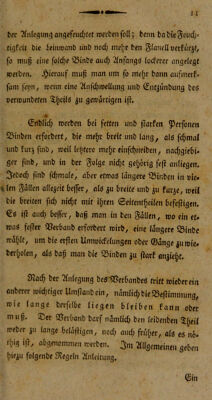 11
der Anlegung angefeuchtet werden soll; denn da die Feuch-
tigkeit die Leinwand und noch mehr den Flanell verkürzt,
so muß eine solche Binde auch Anfangs lockerer angelegt
werden. Hierauf muß man um so mehr dann aufmerk-
sam seyn, wenn eine Anschwellung und Entzündung des
verwundeten Theils zu gewärtigen ist.
Endlich werden bei fetten und starken Personen
Binden erfordert, die mehr breit und lang, als schmal
und kurz sind, weil letztere mehr einschneiden, nachgiebi-
ger sind, und in der Folge nicht gehörig fest anliegen.
Jedoch sind schmale, aber etwas längere Binden in vie-
len Fällen allezeit besser, als zu breite und zu kurze, weil
die breiten sich nicht mit ihren Seitentheilen befestigen.
Es ist auch besser, daß man in den Fällen, wo ein et-
was fester Verband erfordert wird, eine längere Binde
wählt, um die ersten Umwickelungen oder Gänge zu wie-
derholen, als daß man die Binden zu stark anzieht.
Nach der Anlegung des Verbandes tritt wieder ein
anderer wichtiger Umstand ein, nämlich die Bestimmung,
wie lange derselbe liegen bleiben kann oder
muß. Der Verband darf nämlich den leidenden Theil
weder zu lange belästigen, noch auch früher, als es nö-
thig ist, abgenommen werden. Im Allgemeinen geben
hiezu folgende Regeln Anleitung.
Ein